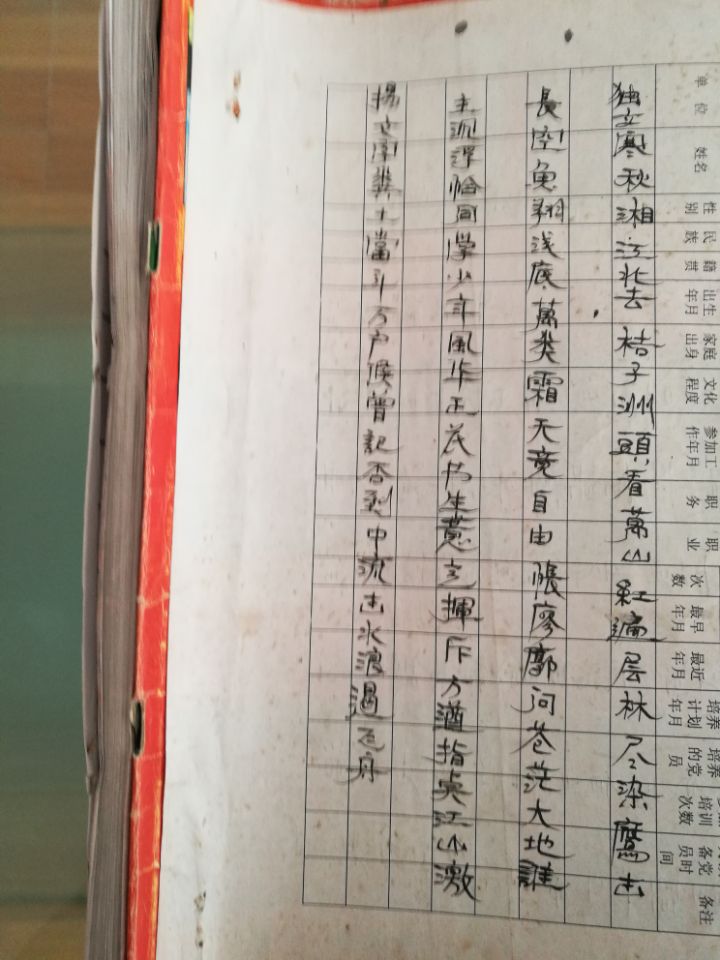 单位 姓名 性别 民族 籍贯 出生年月 家庭出身 文化程度 参加工作年月 职务 职业 次数 最早年月 最近年月 培养计划年月 培养的党员 培训次数 备党员时间 备注
独立寒秋湘江北去,桔子洲頭看萬山紅遍层林尽染鹰击
長空魚翔浅底萬类霜天竟自由悵廖廓问苍茫大地誰
主沉浮恰同學少年風华正茂书生意气揮斥方遒指奌江山激
揚文字粪土當年万户侯曾記否到中流击水浪遏飞舟